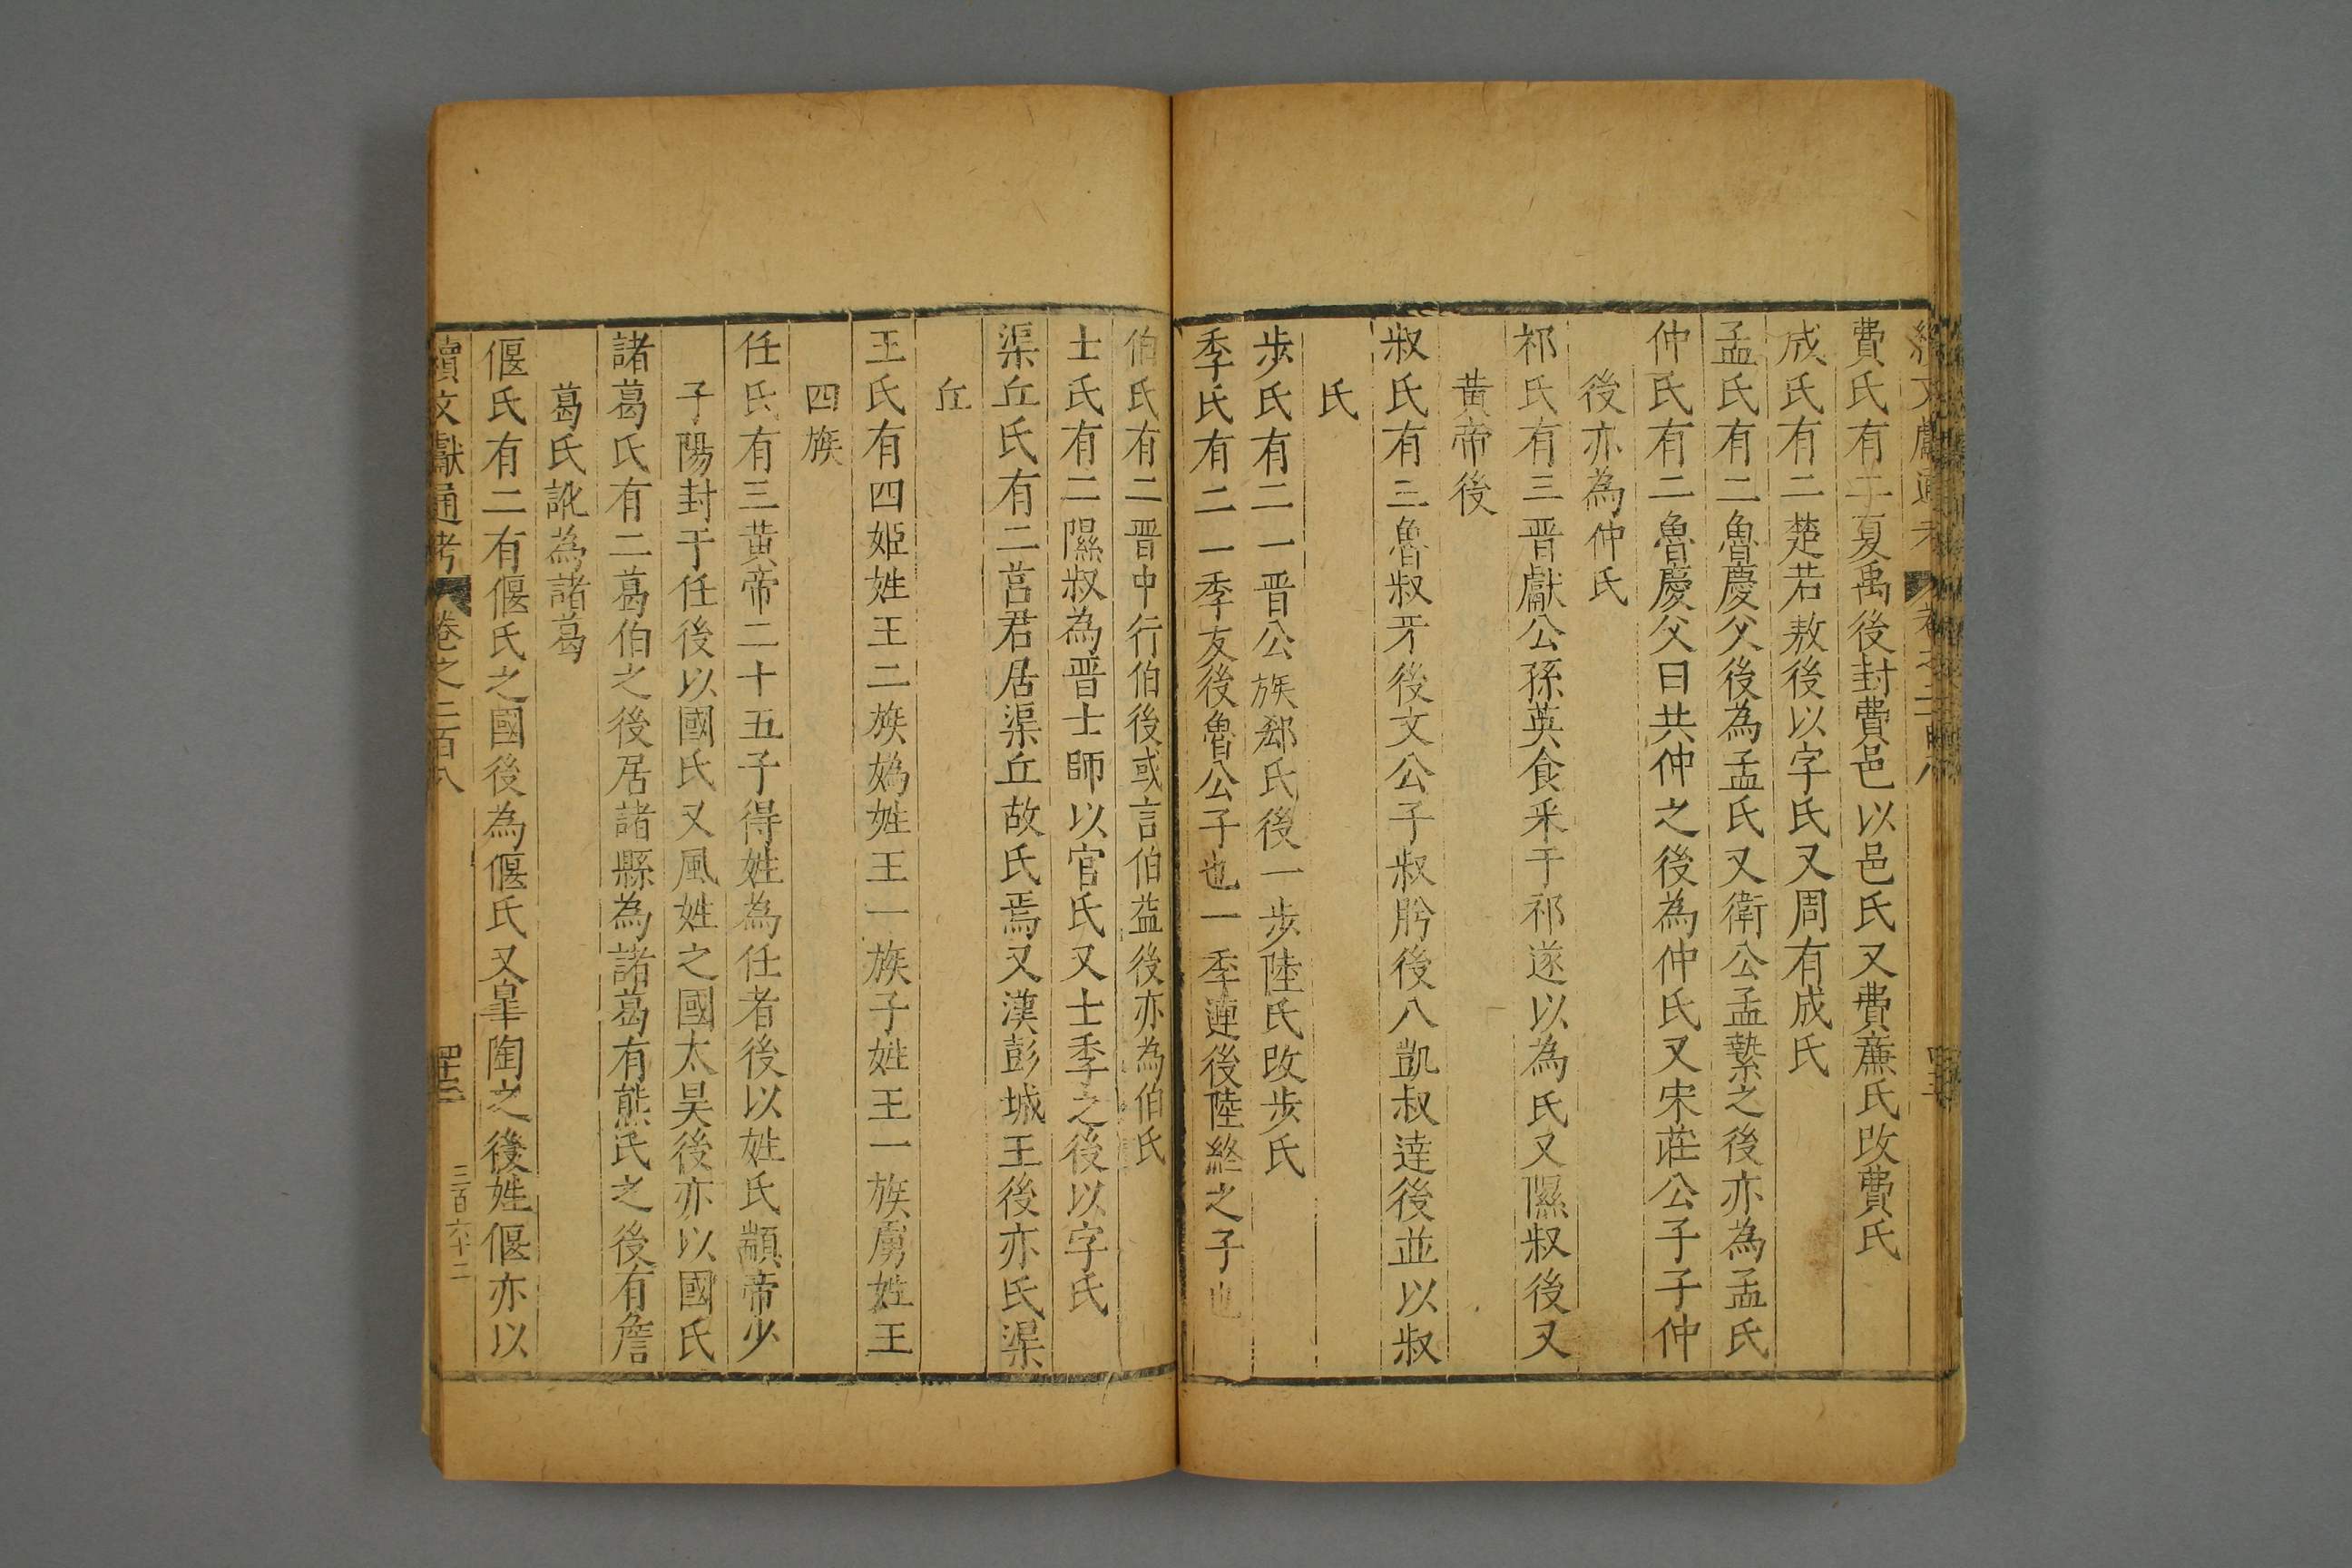 續文獻通考 卷之二百八
費氏有二夏禹後封費邑以邑氏又費廉氏改費氏
成氏有二楚若敖後以字氏又周有成氏
孟氏有二魯慶父後為孟氏又衛公孟縶之後亦為孟氏
仲氏有二魯慶父曰共仲之後為仲氏又宋莊公子子仲
後亦為仲氏
祁氏有三晋獻公孫英食釆于祁遂以為氏又隰叔後又
黃帝後
叔氏有三魯叔牙後文公子叔肸後八凱叔達後並以叔
氏
步氏有二一晋公族郄氏後一步陸氏改步氏
季氏有二一季友後魯公子也一季連後陸終之子也
伯氏有二晋中行伯後或言伯益後亦為伯氏
士氏有二隰叔為晋士師以官氏又士季之後以字氏
渠丘氏有二莒君居渠丘故氏焉又漢彭城王後亦氏渠
丘
王氏有四姬姓王二族媯姓王一族子姓王一族虜姓王
四族
任氏有三黃帝二十五子得姓為任者後以姓氏顓帝少
子陽封于任後以國氏又風姓之國太昊後亦以國氏
諸葛氏有二葛伯之後居諸縣為諸葛有熊氏之後有詹
葛氏訛為諸葛
偃氏有二有偃氏之國後為偃氏又皐陶之後姓偃亦以
續文獻通考 卷之二百八 三百六十二